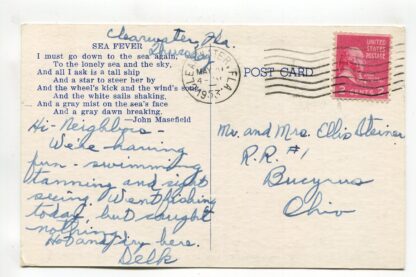 Clearwater, Fla.
Thursday
SEA FEVER
I must go down to the sea again,
To the lonely sea and the sky,
And all I ask is a tall ship
And a star to steer her by
And the wheel's kick and the wind's song
And the white sails shaking,
And a gray mist on the sea's face
And a gray dawn breaking.
—John Masefield
Hi- Neighbors-
We're having
fun - swimming
tanning and sight
seeing. Went fishing
today, but caught
nothing.
Hot and dry here.
Delk
CLEARWATER, FLA
MAY
1953
POST CARD
UNITED STATES
POSTAGE
2 CENTS 2
Mr. and Mrs. Ellis Steiner
R.R. #1
Bucyrus
Ohio